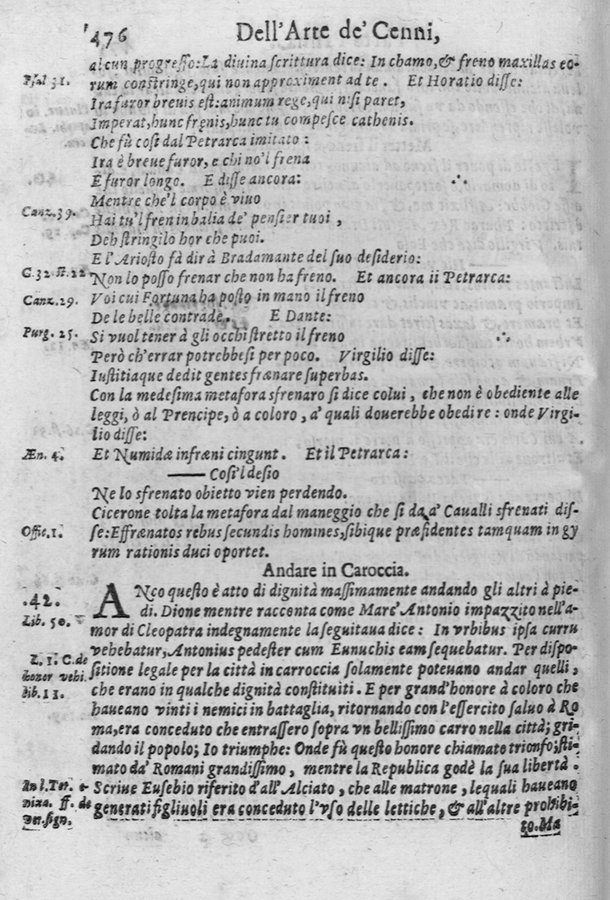 476 Dell'Arte de' Cenni,
alcun progresso: La diuina scrittura dice: In chamo, & freno maxillas eo-
Psal 31. rum constringe, qui non approximent ad te. Et Horatio disse:
Ira furor breuis est: animum rege, qui nisi paret,
Imperat, hunc frenis, hunc tu compesce cathenis.
Che fù cosi dal Petrarca imitato:
Ira è breue furor, e chi no'l frena
E furor longo. E disse ancora:
Mentre che'l corpo è viuo
Canz. 39. Hai tu'l fren in balia de' pensier tuoi,
Deh stringilo hor che puoi.
E l'Ariosto fà dir à Bradamante del suo desiderio:
C. 32 st. 22 Non lo posso frenar che non ha freno. Et ancora il Petrarca:
Canz. 29. Voi cui Fortuna ha posto in mano il freno
De le belle contrade. E Dante:
Purg. 25. Si vuol tener à gli occhi stretto il freno
Però ch'errar potrebbesi per poco. Virgilio disse:
Iustitiaque dedit gentes frænare superbas.
Con la medesima metafora sfrenaro si dice colui, che non è obediente alle
leggi, ò al Prencipe, ò a coloro, a' quali douerebbe obedire: onde Virgi-
lio disse:
Æn. 4. Et Numidæ infræni cingunt. Et il Petrarca:
—— Cosi'l desio
Ne lo sfrenato obietto vien perdendo.
Cicerone tolta la metafora dal maneggio che si da a' Caualli sfrenati dis-
Offic. 1. se: Effrænatos rebus secundis homines, sibique præfidentes tamquam in gy
rum rationis duci oportet.
Andare in Caroccia.
.42. ANco questo è atto di dignità massimamente andando gli altri à pie-
di. Dione mentre racconta come Marc' Antonio impazzito nell'a-
Lib. 50. mor di Cleopatra indegnamente la seguitaua dice: In vrbibus ipsa curru
vehebatur, Antonius pedester cum Eunuchis eam sequebatur. Per dispo-
L. 1. C. de sitione legale per la città in carroccia solamente poteuano andar quelli,
honor vehi. lib. 11. che erano in qualche dignità constituiti. E per grand'honore à coloro che
haueano vinti i nemici in battaglia, ritornando con l'essercito saluo à Ro
ma, era conceduto che entrassero sopra vn bellissimo carro nella città; gri-
dando il popolo; Io triumphe: Onde fù questo honore chiamato trionfo; sti-
mato da' Romani grandissimo, mentre la Republica godè la sua libertà.
Scriue Eusebio riferito d'all'Alciato, che alle matrone, lequali haueano
generati figliuoli era conceduto l'vso delle lettiche, & all'altre prohibi-
to. Ma